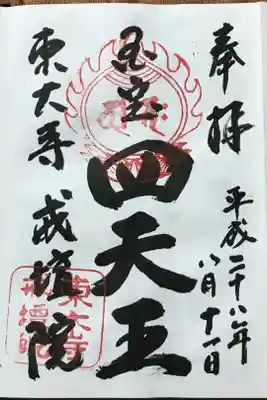 奉拝
平成二十八年
八月十一日
国宝
四天王
東大寺 戒壇院
東大寺
戒壇院